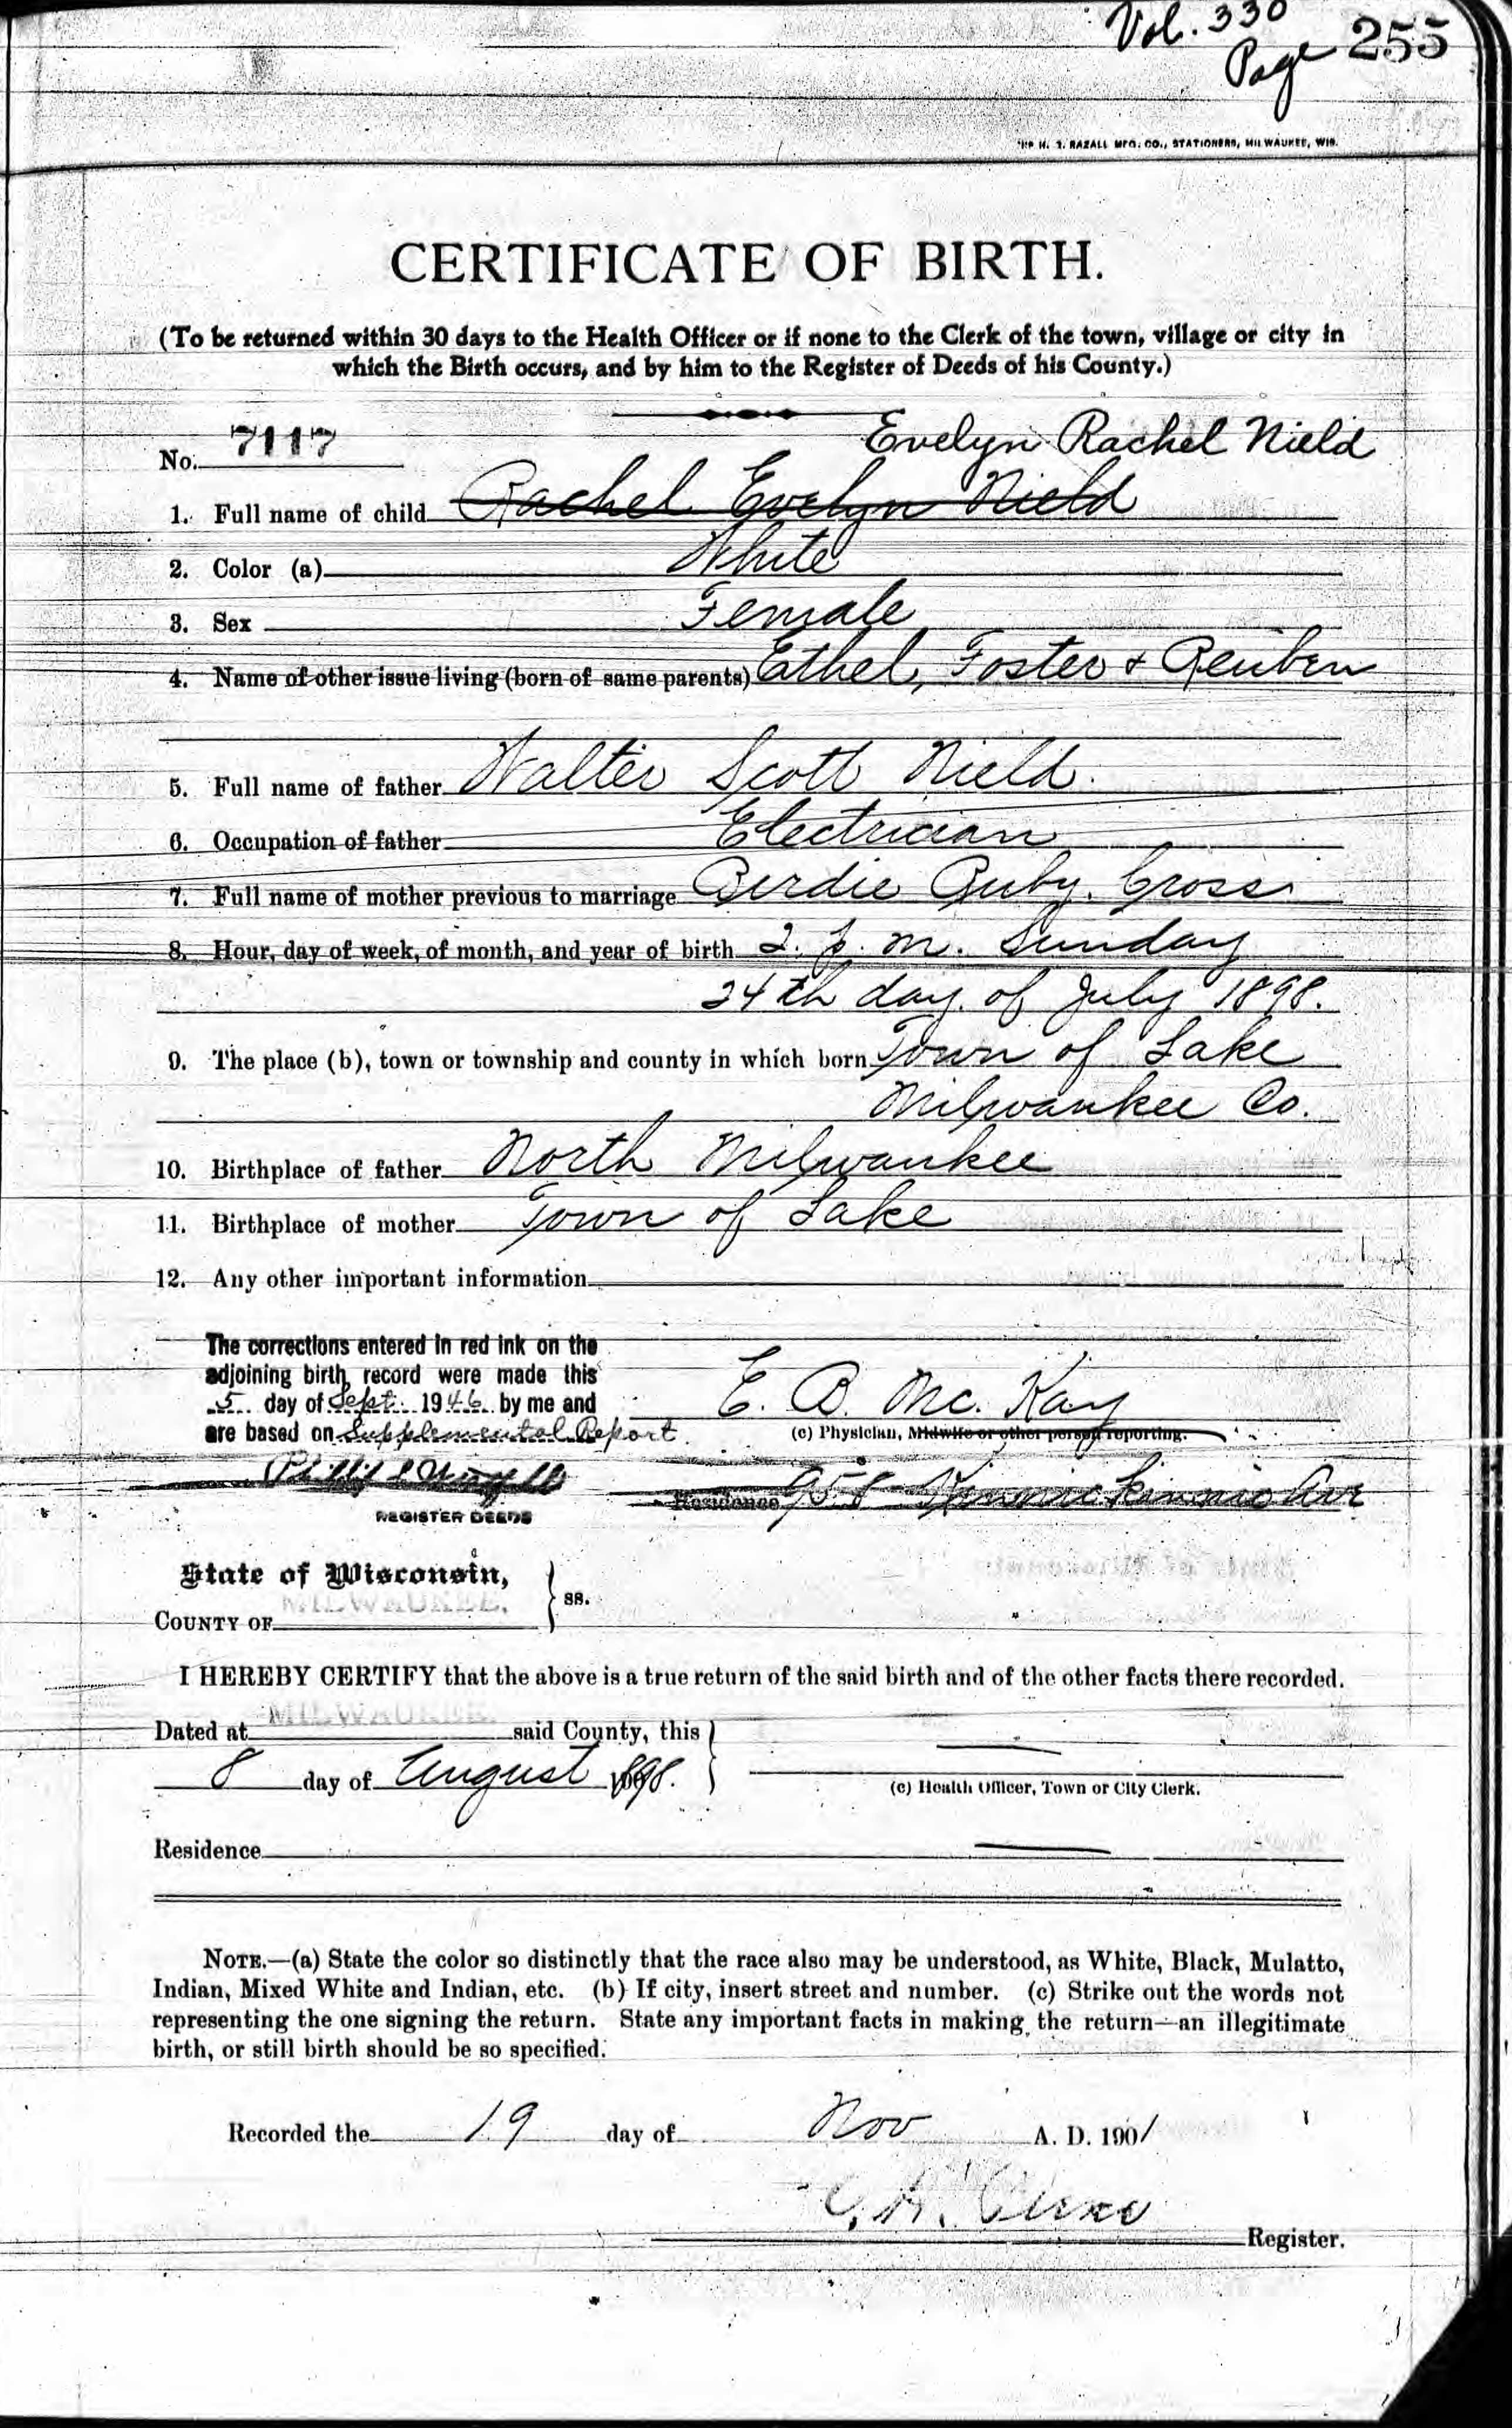 Vol. 330
Page 255
H. RAZALL MFG. CO., STATIONERS, MILWAUKEE, WIS.
CERTIFICATE OF BIRTH.
(To be returned within 30 days to the Health Officer or if none to the Clerk of the town, village or city in
which the Birth occurs, and by him to the Register of Deeds of his County.)
Evelyn Rachel Nield
No. 7117
1. Full name of child Rachel Evelyn Nield
2. Color (a) White
3. Sex Female
4. Name of other issue living (born of same parents) Ethel, Foster & Reuben
5. Full name of father Walter Scott Nield.
6. Occupation of father Electrician
7. Full name of mother previous to marriage Birdie Ruby Cross
8. Hour, day of week, of month, and year of birth 2. p. m. Sunday
24th day of July 1898.
9. The place (b), town or township and county in which born Town of Lake
Milwaukee Co.
10. Birthplace of father North Milwaukee
11. Birthplace of mother Town of Lake
12. Any other important information
The corrections entered in red ink on the
adjoining birth record were made this
5 day of Sept. 1946 by me and
are based on Supplemental Report.
E. B. Mc. Kay
(c) Physician, Midwife or other person reporting.
REGISTER DEEDS
Residence 958 Kinnickinnic Ave
State of Wisconsin,
COUNTY OF MILWAUKEE. ss.
I HEREBY CERTIFY that the above is a true return of the said birth and of the other facts there recorded.
Dated at MILWAUKEE. said County, this
8 day of August 1898.
(c) Health Officer, Town or City Clerk.
Residence
NOTE.—(a) State the color so distinctly that the race also may be understood, as White, Black, Mulatto,
Indian, Mixed White and Indian, etc. (b) If city, insert street and number. (c) Strike out the words not
representing the one signing the return. State any important facts in making the return—an illegitimate
birth, or still birth should be so specified.
Recorded the 19 day of Nov A. D. 1901
Register.